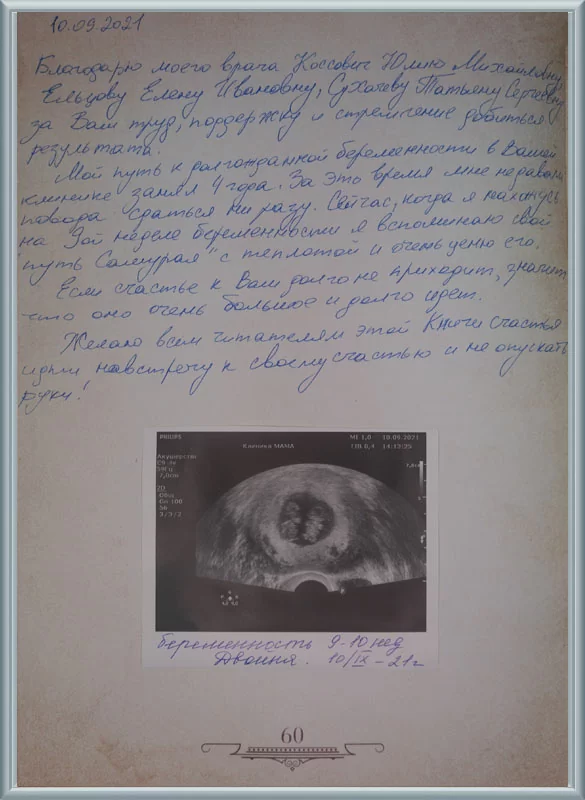 10.09.2021
Благодарю моего врача Коссович Юлию Михайловну,
Ельцову Елену Ивановну, Сухачеву Татьяну Сергеевну
за Ваш труд, поддержку и стремление добиться
результата.
Мой путь к долгожданной беременности в Вашей
клинике занял 4 года. За это время мне не давали
повода сдаться ни разу. Сейчас, когда я нахожусь
на неделе беременности я вспоминаю свой
"путь Самурая" с теплотой и очень ценю его.
Если счастье к Вам долго не приходит, значит
что оно очень большое и долго идет.
Желаю всем читателям этой Книги Счастья
идти навстречу к своему счастью и не опускать
руки!
PHILIPS
Клиника МАМА
MI 1,0 10.09.2021
TIB 0,4 14:13:25
Акушерство
7,0cm
2D
3/3/2
беременность 9-10 нед
Двойня. 10/IX-21г
60